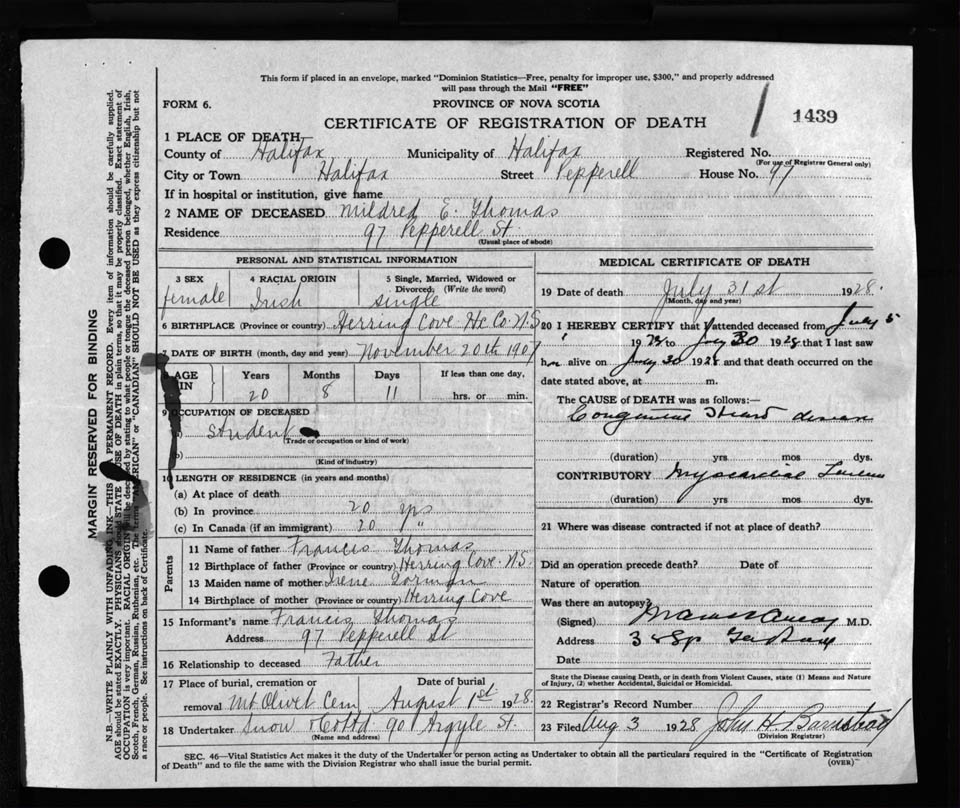 This form if placed in an envelope, marked "Dominion Statistics—Free, penalty for improper use, $300," and properly addressed
will pass through the Mail "FREE"
FORM 6.
PROVINCE OF NOVA SCOTIA
CERTIFICATE OF REGISTRATION OF DEATH
1439
1 PLACE OF DEATH—
County of Halifax Municipality of Halifax Registered No.
(For use of Registrar General only)
City or Town Halifax Street Pepperell House No. 97
If in hospital or institution, give name
2 NAME OF DECEASED Mildred E. Thomas
Residence 97 Pepperell St.
(Usual place of abode)
PERSONAL AND STATISTICAL INFORMATION
3 SEX 4 RACIAL ORIGIN 5 Single, Married, Widowed or
Divorced, (Write the word)
female Irish single
6 BIRTHPLACE (Province or country) Herring Cove Hx Co. N.S.
7 DATE OF BIRTH (month, day and year) November 20th 1907
AGE IN Years Months Days If less than one day,
20 8 11 hrs. or min.
9 OCCUPATION OF DECEASED
student
(Trade or occupation or kind of work)
(Kind of industry)
10 LENGTH OF RESIDENCE (in years and months)
(a) At place of death
(b) In province 20 yrs
(c) In Canada (if an immigrant) 20 "
Parents
11 Name of father Francis Thomas
12 Birthplace of father (Province or country) Herring Cove. N.S.
13 Maiden name of mother Irene Gorman
14 Birthplace of mother (Province or country) Herring Cove
15 Informant's name Francis Thomas
Address 97 Pepperell St
16 Relationship to deceased Father
17 Place of burial, cremation or Date of burial
removal Mt Olivet Cem August 1st 1928.
18 Undertaker Snow & Co Ltd 90 Argyle St.
(Name and address)
MEDICAL CERTIFICATE OF DEATH
19 Date of death July 31st 1928.
(Month, day and year)
20 I HEREBY CERTIFY that I attended deceased from July 5
1928 to July 30 1928 that I last saw
her alive on July 30 1928 and that death occurred on
date stated above, at m.
The CAUSE of DEATH was as follows:—
Congenital Heart disease
(duration) yrs mos dys.
CONTRIBUTORY Myocardial
(duration) yrs mos dys.
21 Where was disease contracted if not at place of death?
Did an operation precede death? Date of
Nature of operation
Was there an autopsy?
(Signed) M.D.
Address
Date
State the Disease causing Death, or in death from Violent Causes, state (1) Means and Nature
of Injury, (2) whether Accidental, Suicidal or Homicidal.
22 Registrar's Record Number
23 Filed Aug 3 1928 John H. Barnstead
(Division Registrar)
SEC. 46—Vital Statistics Act makes it the duty of the Undertaker or person acting as Undertaker to obtain all the particulars required in the "Certificate of Registration
of Death" and to file the same with the Division Registrar who shall issue the burial permit.
(OVER)
MARGIN RESERVED FOR BINDING
N.B.—WRITE PLAINLY WITH UNFADING INK—THIS A PERMANENT RECORD. Every item of information should be carefully supplied.
AGE should be stated EXACTLY. PHYSICIANS should STATE OF DEATH in plain terms, so that it may be properly classified. Exact statement of
OCCUPATION is very important. RACIAL ORIGIN will be described by stating to what people or tongue the deceased person belonged, whether English, Irish,
Scotch, French, German, Russian, Ruthenian, etc. The terms "AMERICAN" or "CANADIAN" SHOULD NOT BE USED as they express citizenship but not
a race or people. See instructions on back of Certificate.